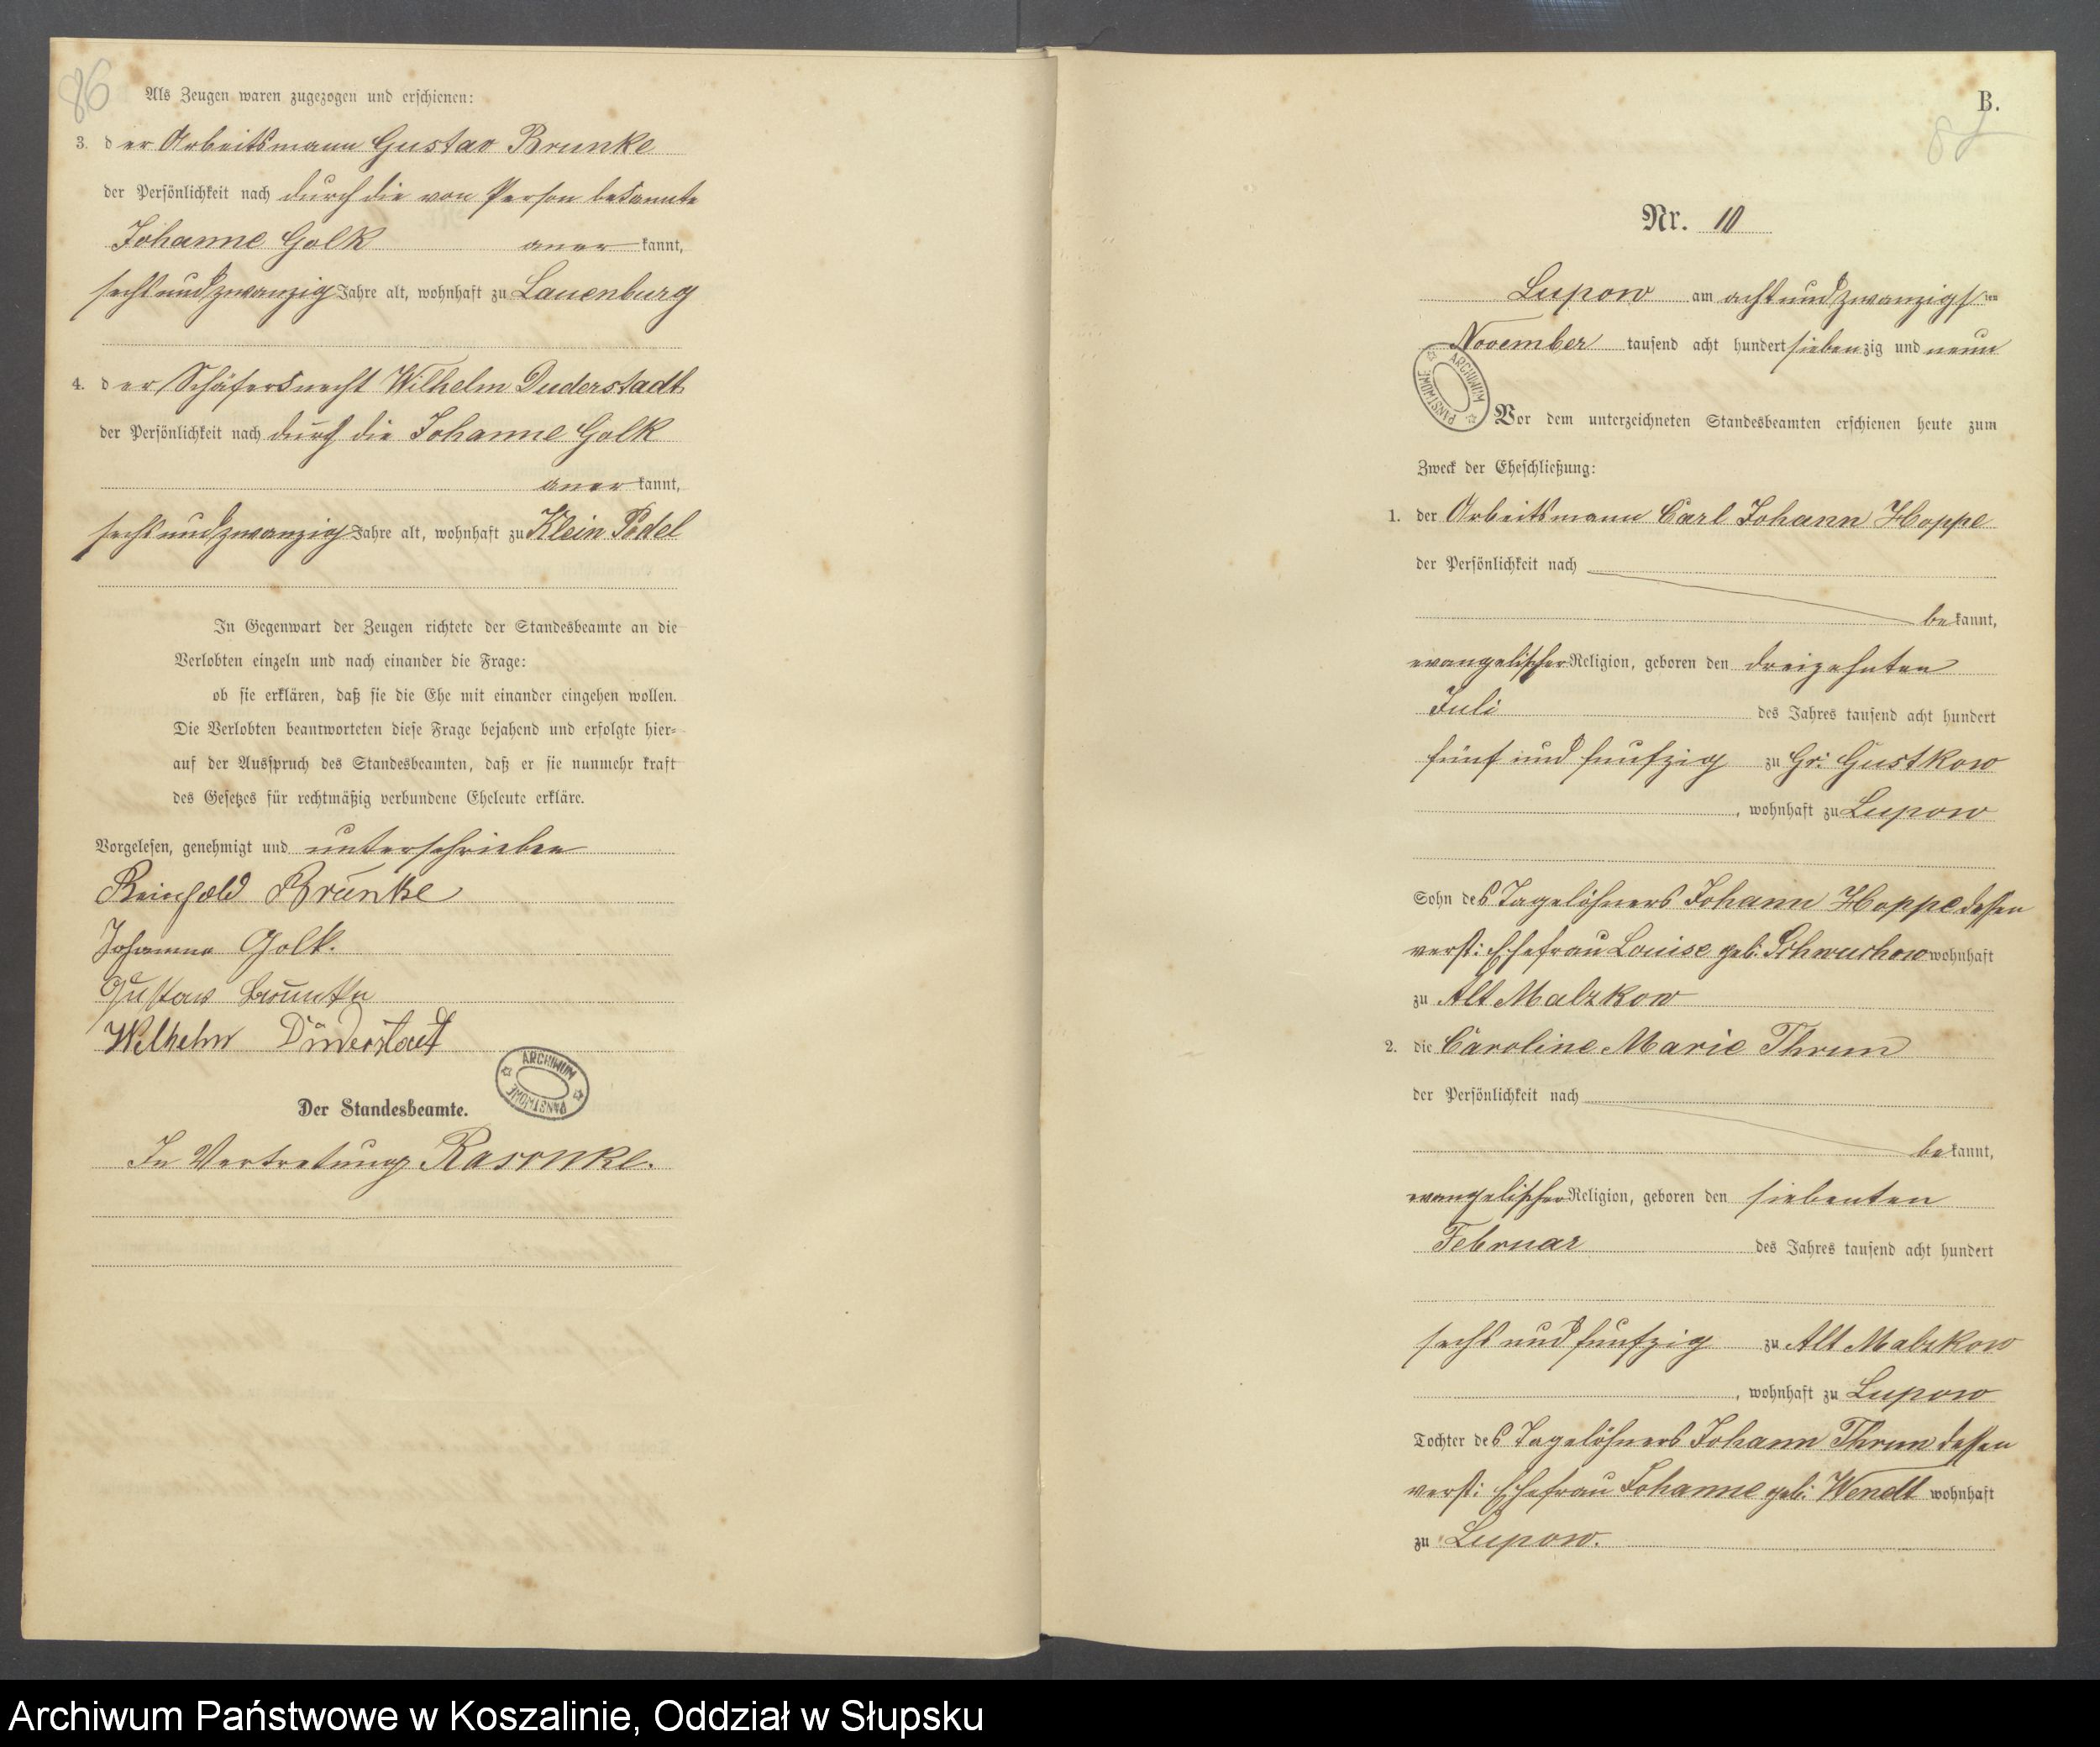 86
Als Zeugen waren zugezogen und erschienen:
3. der Arbeitsmann Gustav Brunke
der Persönlichkeit nach durch die von Person bekannte
Johanne Golk anerkannt,
sechsundzwanzig Jahre alt, wohnhaft zu Lauenburg
4. der Schäferknecht Wilhelm Duderstadt
der Persönlichkeit nach durch die Johanne Golk
anerkannt,
sechsundzwanzig Jahre alt, wohnhaft zu Klein Podel
In Gegenwart der Zeugen richtete der Standesbeamte an die
Verlobten einzeln und nach einander die Frage:
ob sie erklären, daß sie die Ehe mit einander eingehen wollen.
Die Verlobten beantworteten diese Frage bejahend und erfolgte hier-
auf der Ausspruch des Standesbeamten, daß er sie nunmehr kraft
des Gesetzes für rechtmäßig verbundene Eheleute erkläre.
Vorgelesen, genehmigt und unterschrieben
Reinhold Brunke
Johanna Golk.
Gustav Brunke
Wilhelm
ARCHIWUM PAŃSTWOWE
Der Standesbeamte.
In Vertretung
B.
87
Nr. 10
Lupow am achtundzwanzigsten
November tausend acht hundert siebenzig und neun
ARCHIWUM PAŃSTWOWE
Vor dem unterzeichneten Standesbeamten erschienen heute zum
Zweck der Eheschließung:
1. der Arbeitsmann Carl Johann Hoppe
der Persönlichkeit nach
bekannt,
evangelischer Religion, geboren den dreizehnten
Juli des Jahres tausend acht hundert
fünf und funfzig zu Gr: Gustkow
, wohnhaft zu Lupow
Sohn des Tagelöhners Johann Hoppe dessen
verst: Ehefrau Louise geb: Schwuchow wohnhaft
zu Alt Malzkow
2. die Caroline Marie Thrun
der Persönlichkeit nach
bekannt,
evangelischer Religion, geboren den siebenten
Februar des Jahres tausend acht hundert
sechs und funfzig zu Alt Malzkow
, wohnhaft zu Lupow
Tochter des Tagelöhners Johann Thrun dessen
verst: Ehefrau Johanne geb: Wendt wohnhaft
zu Lupow.
Archiwum Państwowe w Koszalinie, Oddział w Słupsku